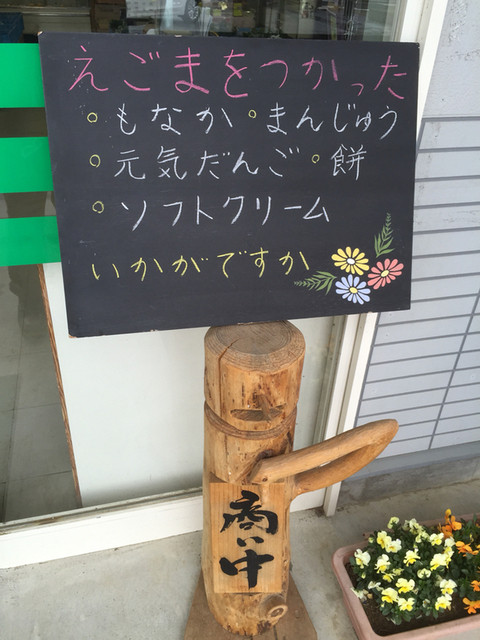 えごまをつかった
。もなか。まんじゅう
。元気だんご。餅
。ソフトクリーム
いかがですか
商い中